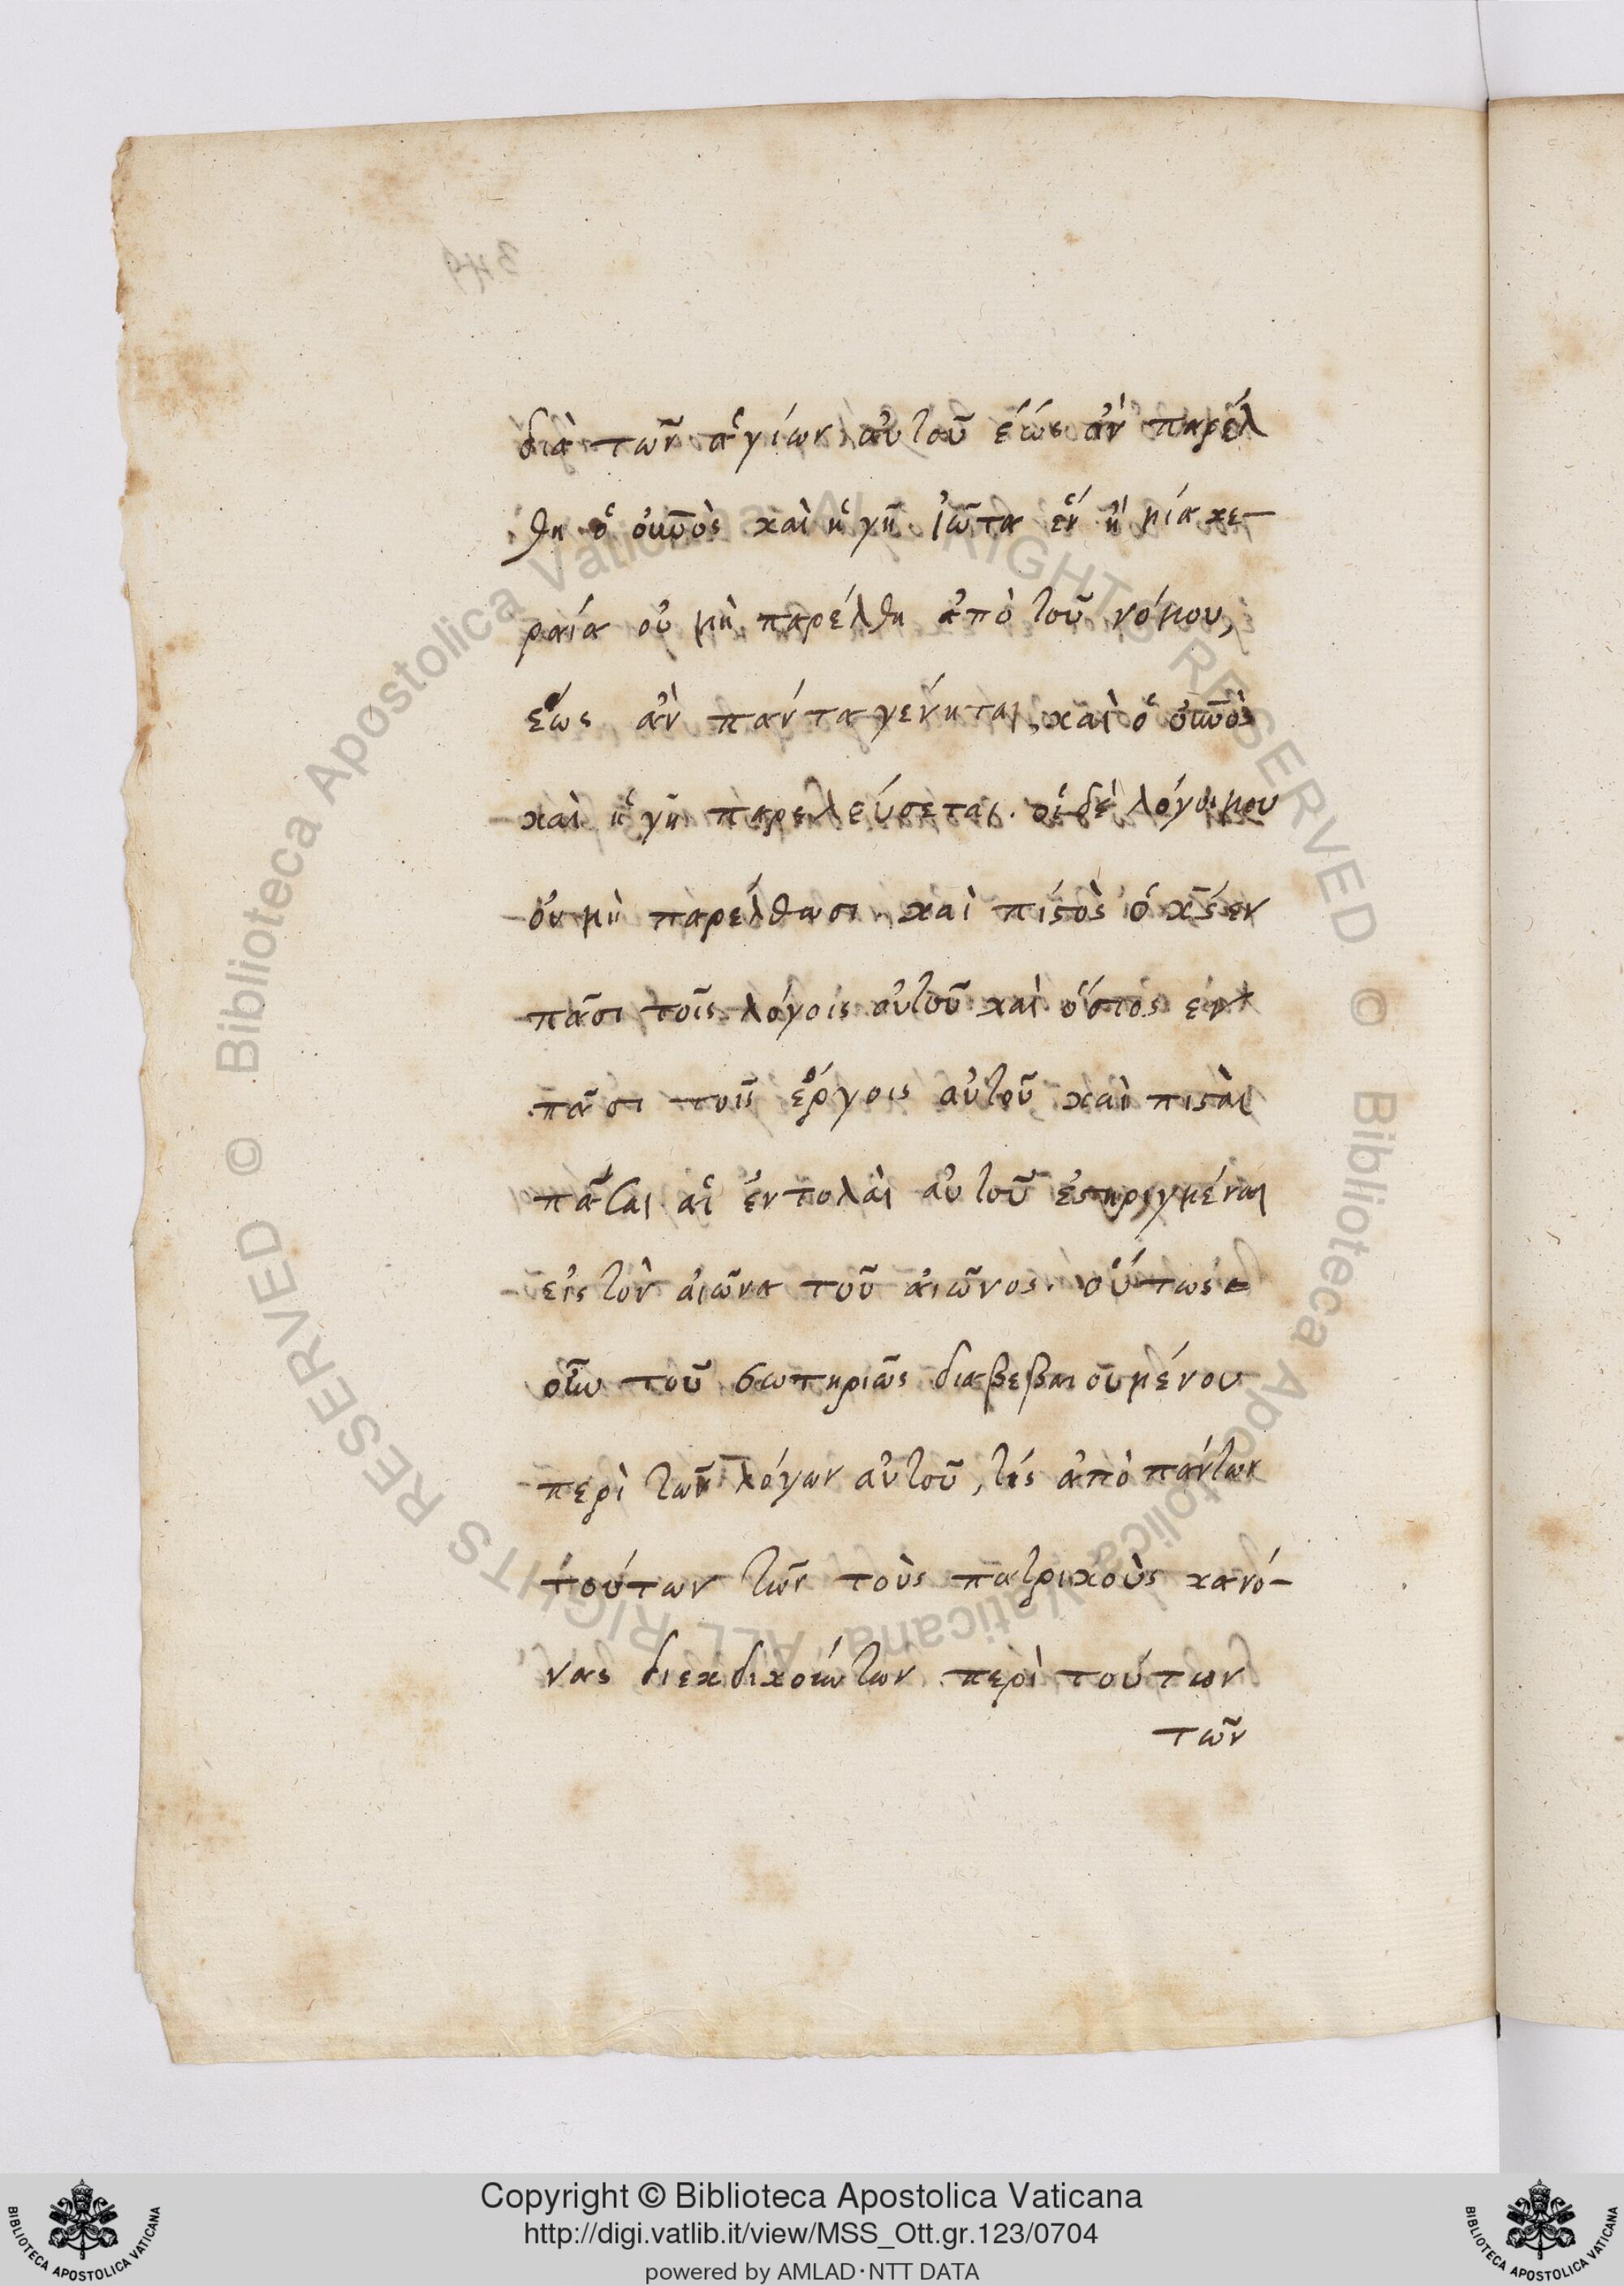 διὰ τῶν ἁγίων αὐτοῦ ἕως ἂν παρέλ
θη ὁ οὐνὸς καὶ ἡ γῆ ἰῶτα ἓν ἢ μία κε-
ραία οὐ μὴ παρέλθη ἀπὸ τοῦ νόμου,
ἕως ἂν πάντα γένηται, καὶ ὁ οὐνὸς
καὶ ἡ γῆ παρελεύσεται. οἱ δὲ λόγοι μου
οὐ μὴ παρέλθωσι. καὶ πιστὸς ὁ κς ἐν
πᾶσι τοῖς λόγοις αὐτοῦ καὶ ὅσιος ἐν
πᾶσι τοῖς ἔργοις αὐτοῦ καὶ πισταὶ
πᾶσαι αἱ ἐντολαὶ αὐτοῦ ἐστηριγμέναι
εἰς τὸν αἰῶνα τοῦ αἰῶνος. οὕτως
οὖν τοῦ σωτηρίως διαβεβαιουμένου
περὶ τῶν λόγων αὐτοῦ, τίς ἀπὸ πάντων
τούτων τῶν τοὺς πατρικοὺς κανό-
νας διεκδικούντων περὶ τούτων
τῶν
Copyright © Biblioteca Apostolica Vaticana
http://digi.vatlib.it/view/MSS_Ott.gr.123/0704
powered by AMLAD·NTT DATA
BIBLIOTECA APOSTOLICA VATICANA
BIBLIOTECA APOSTOLICA VATICANA
© Biblioteca Apostolica Vaticana ALL RIGHTS RESERVED
© Biblioteca Apostolica Vaticana ALL RIGHTS RESERVED